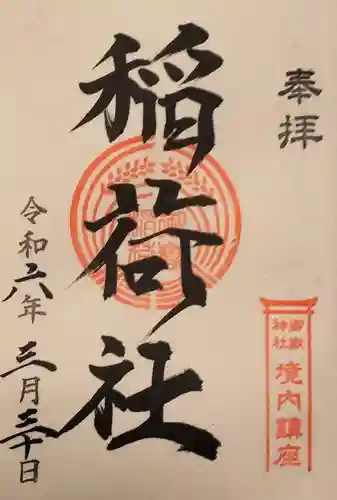 奉拝
稲荷社
令和六年三月三十日
境内講座